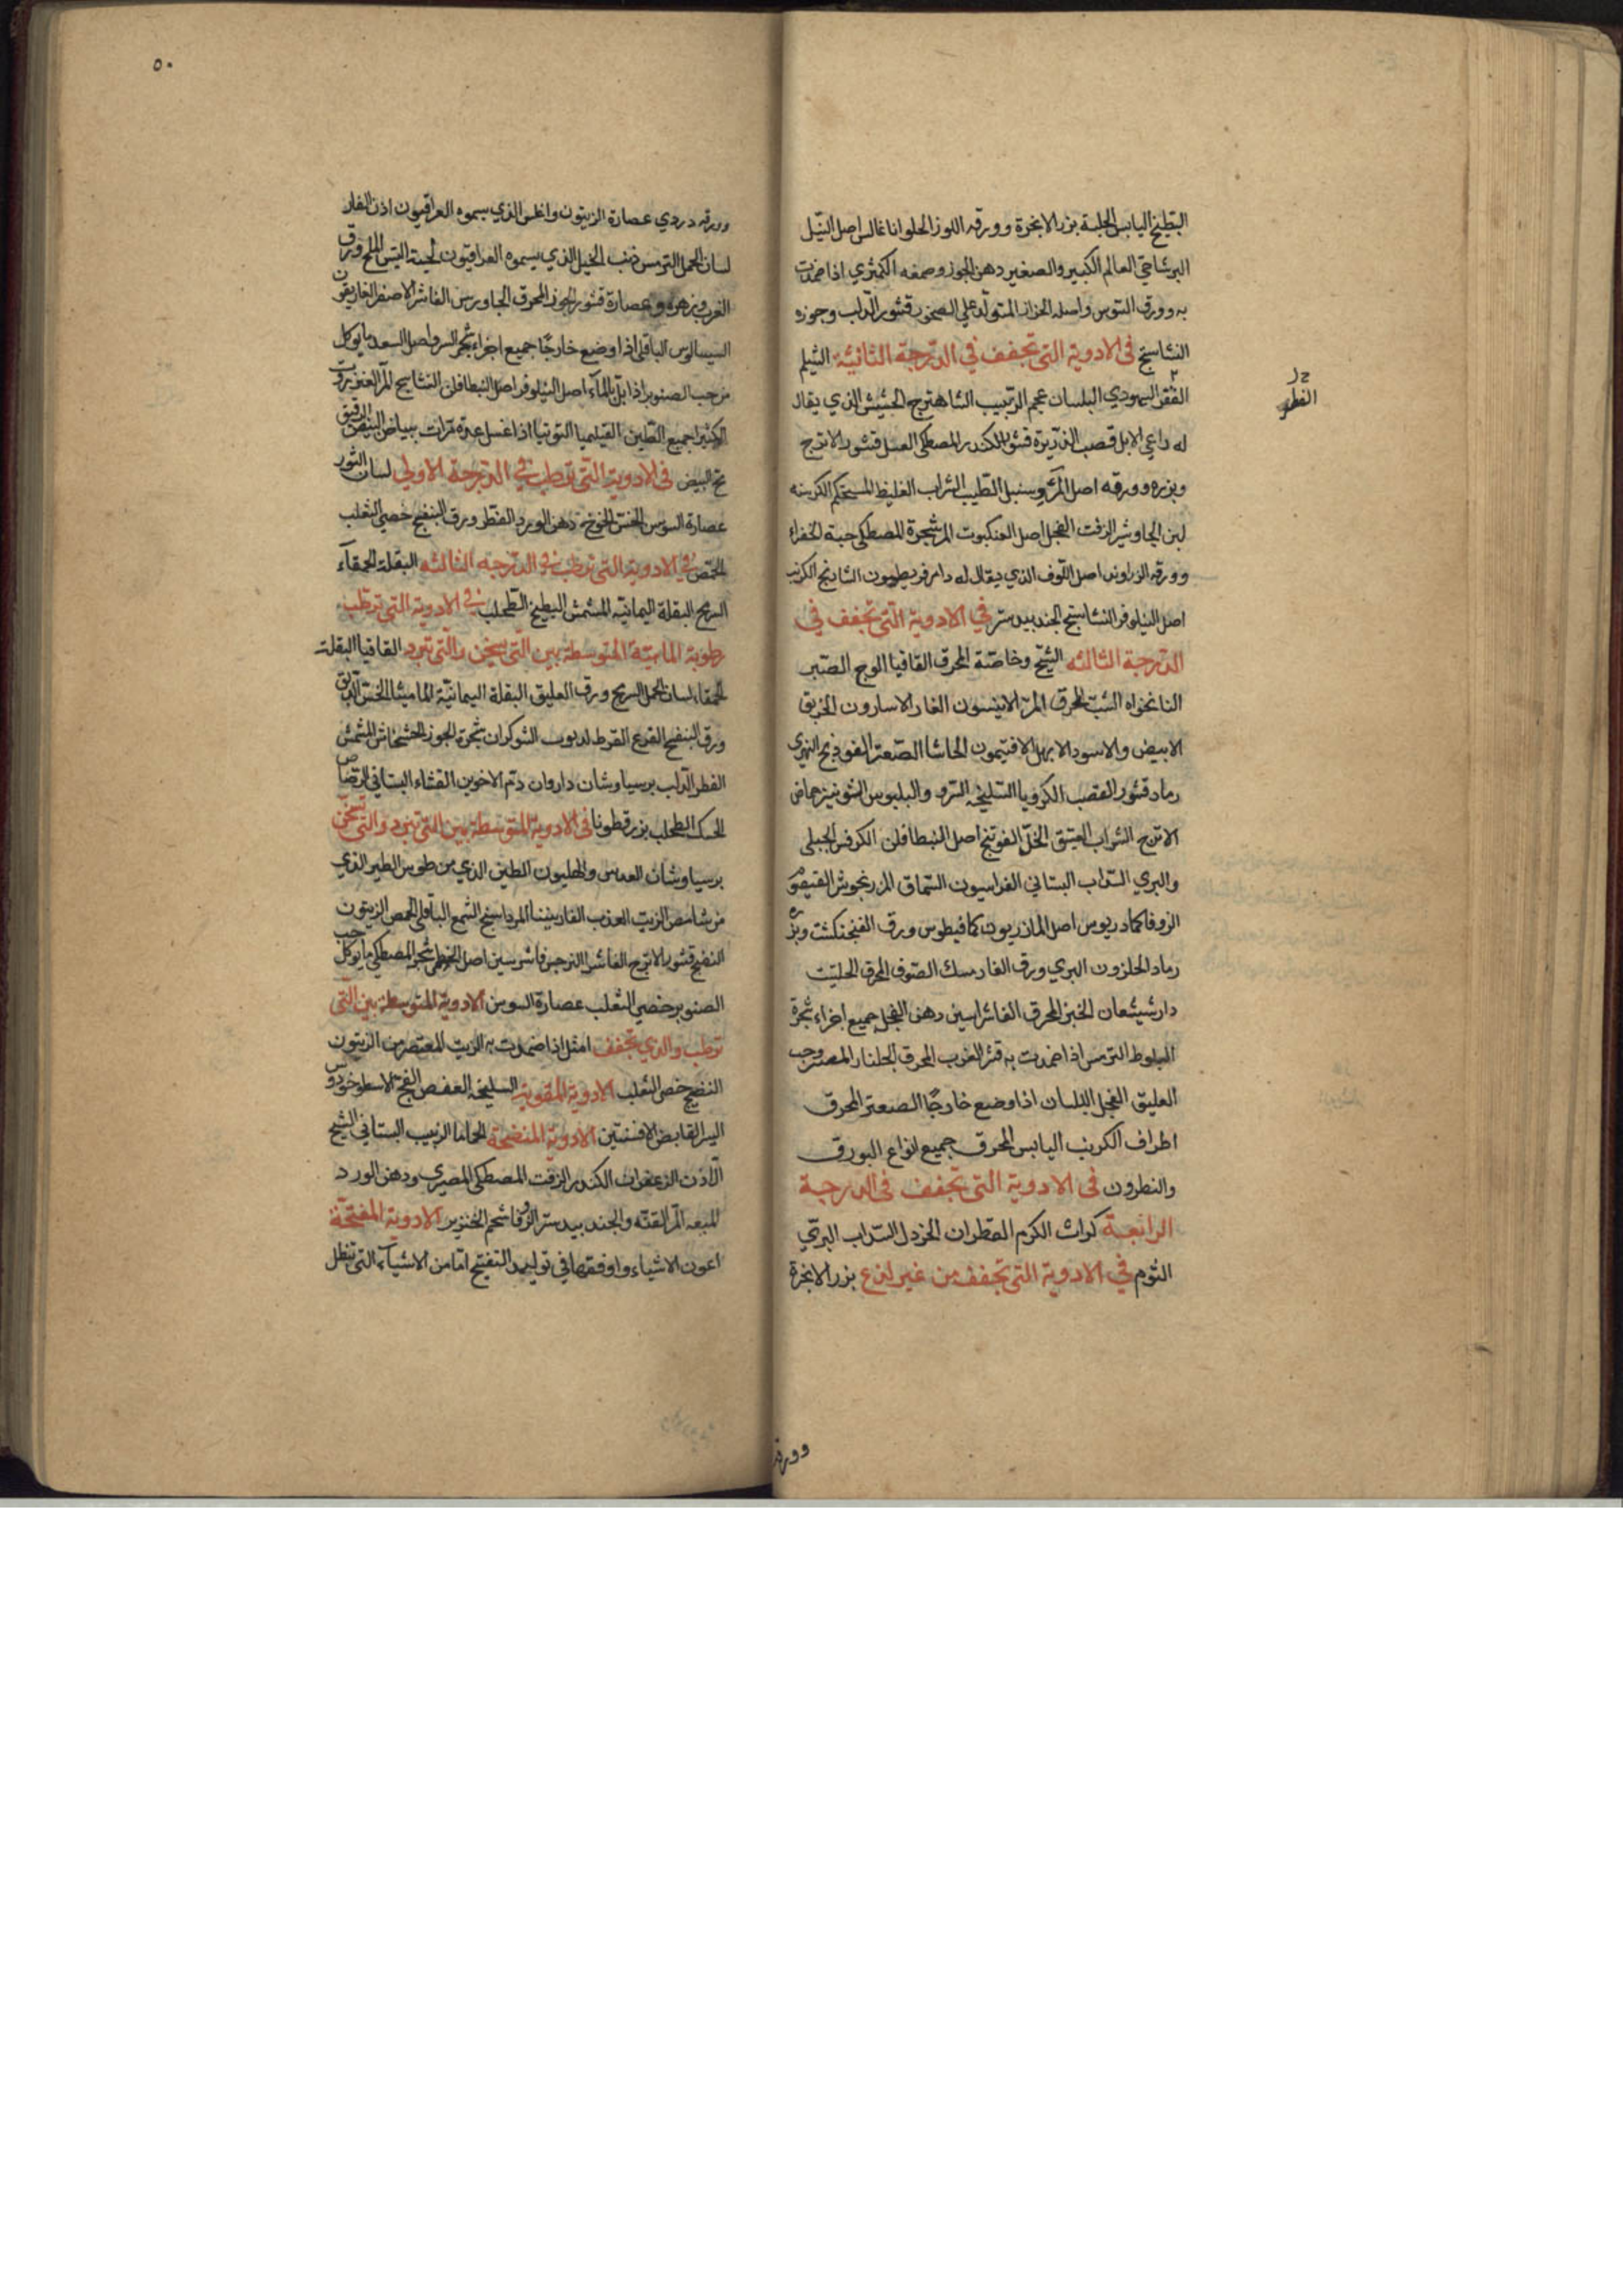 البطيخ اليابس الحلبة بزر الانجرة وورقه اللوز الحلو اناغالس اصل النيل
البرشاحي العالم الكبير والصغير دهن الجوز وصمغه الكمثري اذا ضمدت
به وورق السوس واصله الحزاز المتولد علي الصخور قشور الدلب وجوزه
النشاستج في الادوية التي تجفف في الدرجة الثانية الشيلم
الفقر اليهودي البلسان عجم الزبيب الشاهترج الحشيش الذي يقال
له داعي الابل قصب الذريرة قشور الكندر المصطكي العسل قشور الاترج
وبزره وورقه اصل المر وسنبل الطيب الشراب الغليظ المستحكم الكرسنه
لبن الجاوشير الزفت الفجل اصل العنكبوت المر شجرة المصطكي حبة الخضراء
وورقه الزراوند اصل اللوف الذي يقال له الشادنج الكرنب
اصل النيلوفر النشاستج الجندبيدستر في الادوية التي تجفف في
الدرجة الثالثه الشيح وخاصة المحرق القاقيا الوج الصبر
النانخواه الشبث المحرق المر الانيسون الغار الاسارون الخربق
الابيض والاسود الابهل الافتيمون الحاشا الصعتر الفوذنج النهري
رماد قشور القصب الكرويا السليخه السرو والبلبوس الشونيز حماض
الاترج الشراب العتيق الخل الفوتنج اصل النبطافلن الكرفس الجبلي
والبري السداب البستاني الفراسيون السماق المرزنجوش القيصوم
الزوفا كمادريوس اصل المازريون كمافيطوس ورق الفنجنكشت وبزره
رماد الحلزون البري ورق الغار مسك الصوف المحرق الحلتيت
دارشيشعان الخبز المحرق الفاشراسين دهن الفجل جميع اجزاء شجرة
البلوط الترمس اذا ضمدت به قشر الغرب المحرق الجلنار المصتر وحب
العليق الفجل البلسان اذا وضع خارجا الصعتر المحرق
اطراف الكرنب اليابس المحرق جميع انواع البورق
والنطرون في الادوية التي تجفف في الدرجة
الرابعة كراث الكرم القطران الخردل السداب البري
الثوم في الادوية التي تجفف من غير لذع بزر الانجرة
وورقه
الفطر
٥٠
وورقه دردي عصارة الزيتون واغلس الذي يسموه العراقيون اذن الفار
لسان الحمل الترمس ذنب الخيل الذي يسموه العراقيون لحية التيس الملح ورق
الغرب وزهره وعصارة قشور الجوز المحرق الجاورس الفاشرا الاصفر الغاريقون
السيسالوس الباقلي اذا وضع خارجا جميع اجزاء شجر السرو اصل السعد ما يوكل
من حب الصنوبر اذا بل بالماء اصل النيلوفر اصل النبطافلن النشاستج المر العنزروت
الكثيرا جميع الطين القيليميا التوتيا اذا غسل عدة مرات بياض البيض الرقيق
مح البيض في الادوية التي ترطب في الدرجة الاولي لسان الثور
عصارة السوس الخس الخوخ دهن الورد الفطر ورق البنفسج خصي الثعلب
الحمص في الادوية التي ترطب في الدرجه الثالثه البقلة الحمقاء
السرمج البقلة اليمانيه المشمش البطيخ الطحلب في الادوية التي ترطب
رطوبة المائية المتوسطة بين التي تسخن والتي تبرد القاقيا البقلة
الحمقاء لسان الحمل السرمج ورق العليق البقلة اليمانية الماميثا الخس الدبق
ورق البنفسج القرع القرط لديوب الشوكران شجرة الجوز الخشخاش المشمش
الفطر الدلب برسياوشان داروان دم الاخوين القثاء البستاني الرصاص
الحسك الطحلب بزرقطونا في الادوية المتوسطة بين التي تبرد والتي تسخن
برسياوشان العدس والهليون الطين الذي من طوس الطير الذي
من شامس الزيت العذب المرداسنج الشمع الباقلي الحمص الزيتون
النضيج قشور الاترج الفاشرا النرجس فاشرسين اصل الخطمي شجر المصطكي ما يوكل حب
الصنوبر خصي الثعلب عصارة السوس الادوية المتوسطة بين التي
ترطب والذي تجفف امثل اذا ضمدت به الزيت المعتصر من الزيتون
النضيج خصي الثعلب الادوية المقوية السليخه العفص الفج الاسطوخودوس
اليسر القابض الافسنتين الادوية المنضجة الحاما الزبيب البستاني الشيح
اللاذن الزعفران الكندر الزفت المصطكي المصري ودهن الورد
الميعه المر القنه والجندبيدستر الزوفا شحم الخنزير الادوية المفتحة
اعون الاشياء واوفقها في توليد التفتيح اما من الاشياء التي تنطل